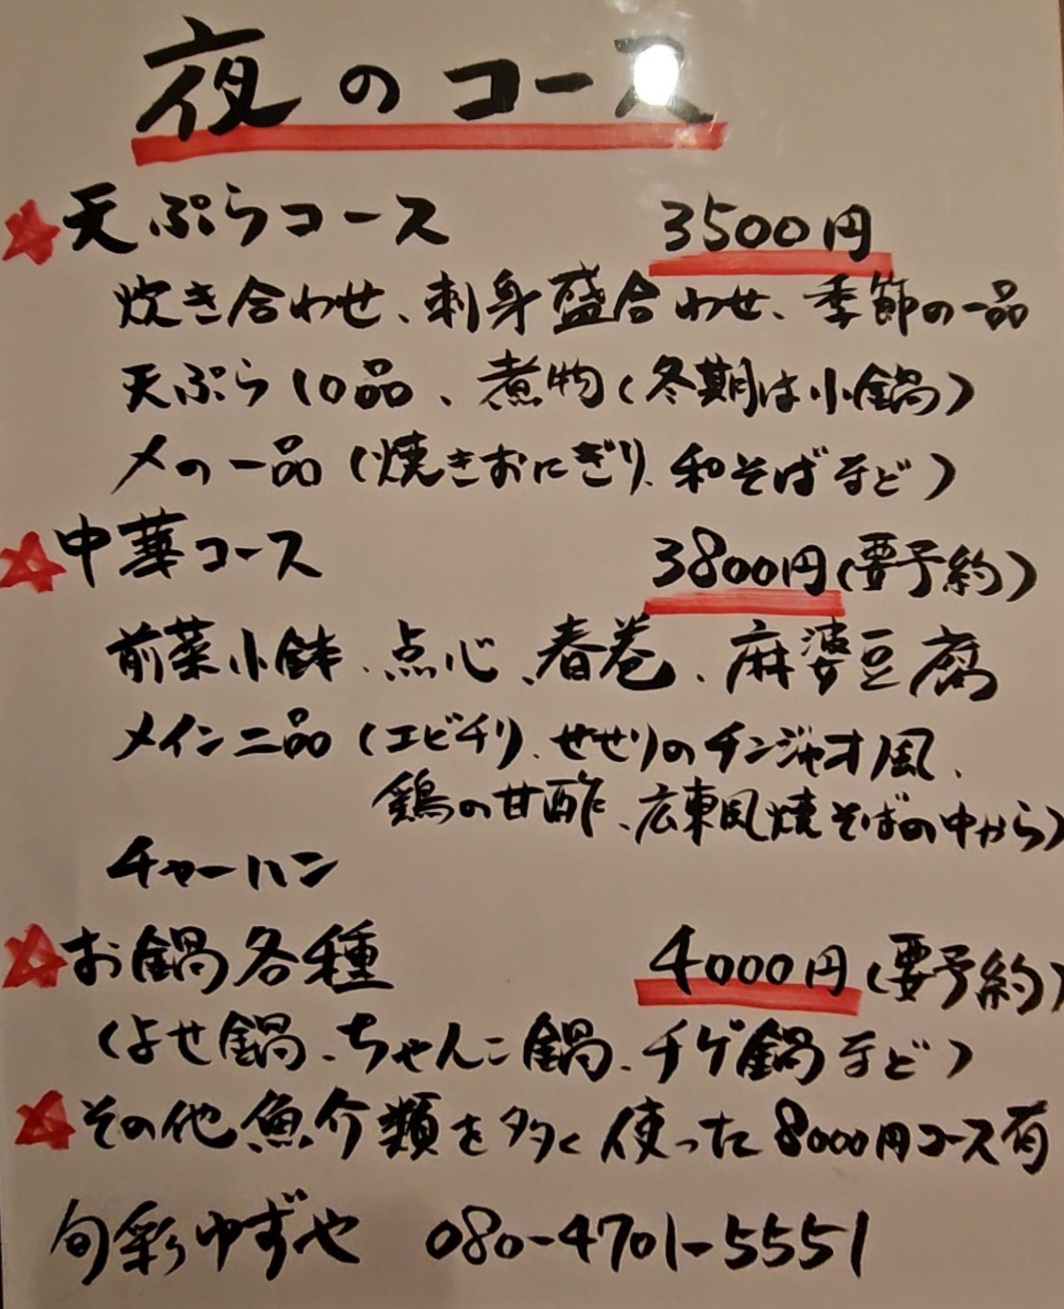 夜のコース
天ぷらコース 3500円
炊き合わせ、刺身盛合わせ、季節の一品
天ぷら10品、煮物(冬期は小鍋)
〆の一品(焼きおにぎり、和そばなど)
中華コース 3800円(要予約)
前菜小鉢、点心、春巻、麻婆豆腐
メイン二品(エビチリ、せせりのチンジャオ風、
鶏の甘酢、広東風焼そばの中から)
チャーハン
お鍋各種 4000円(要予約)
(よせ鍋、ちゃんこ鍋、チゲ鍋など)
その他魚介類を多く使った8000円コース有
旬彩ゆずや 080-4701-5551